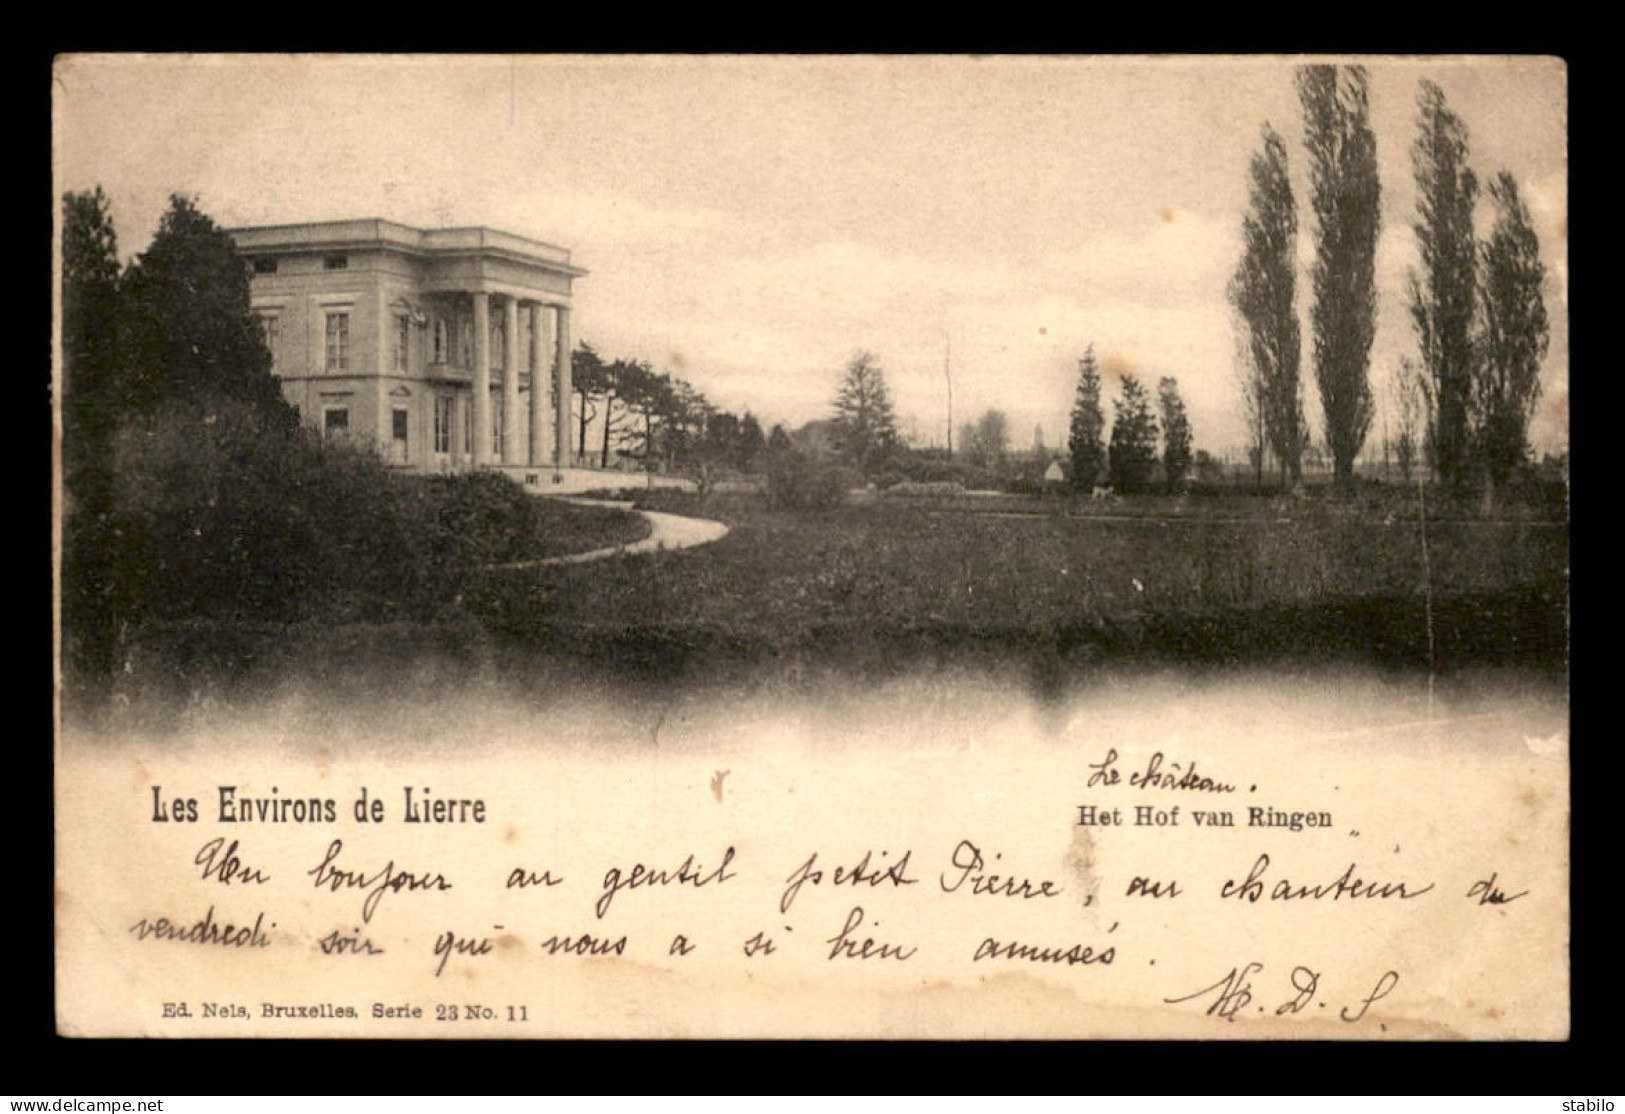 Les Environs de Lierre
Le château.
Het Hof van Ringen
Un bonjour au gentil petit Pierre, au chanteur du
vendredi soir qui nous a si bien amusés.
D. S.
Ed. Nels, Bruxelles, Serie 23 No. 11
www.delcampe.net
stabilo